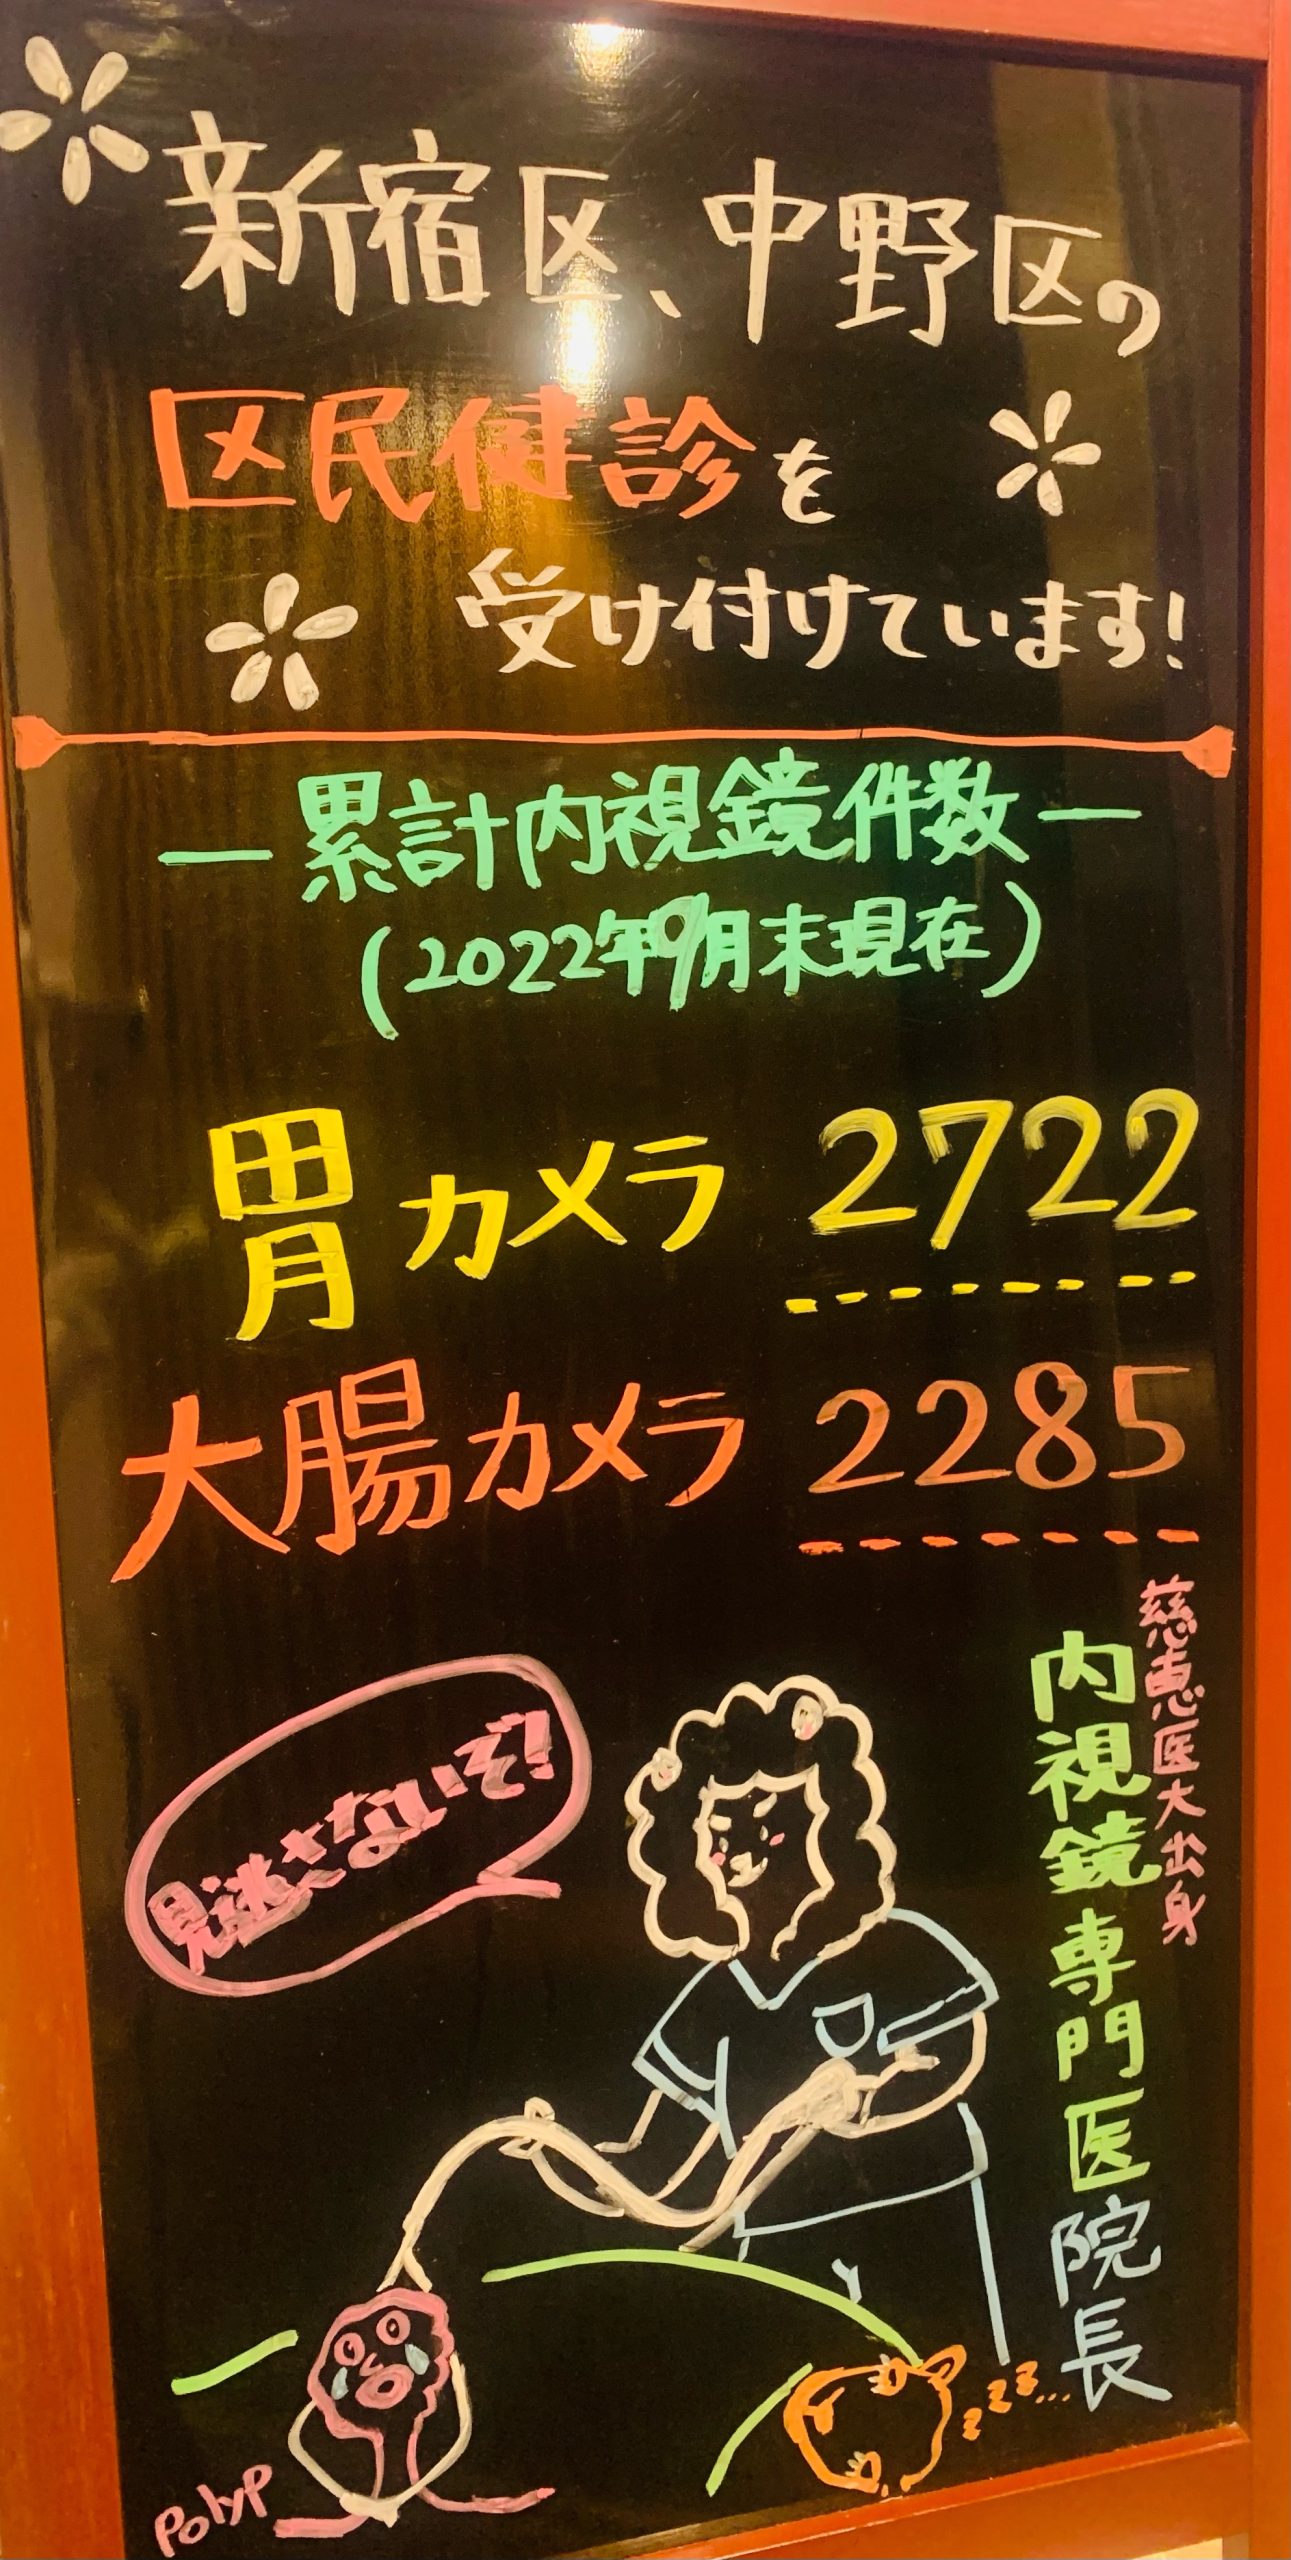 新宿区、中野区の
区民健診を
受け付けています!
累計内視鏡件数
(2022年9月末現在)
胃カメラ 2722
大腸カメラ 2285
慈恵医大出身
内視鏡専門医院長
見逃さないぞ!
zzz...
Polyp